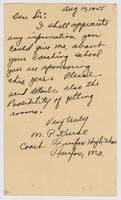 Aug 14, 1945
Dear Sir:
I shall appreciate
any information you
could give me about
your Coaching school
you are sponsoring
this year. Please
send details, also the
Possibility of getting
rooms.
Very truly
M. P. Kruse
Coach. High School
Mo.